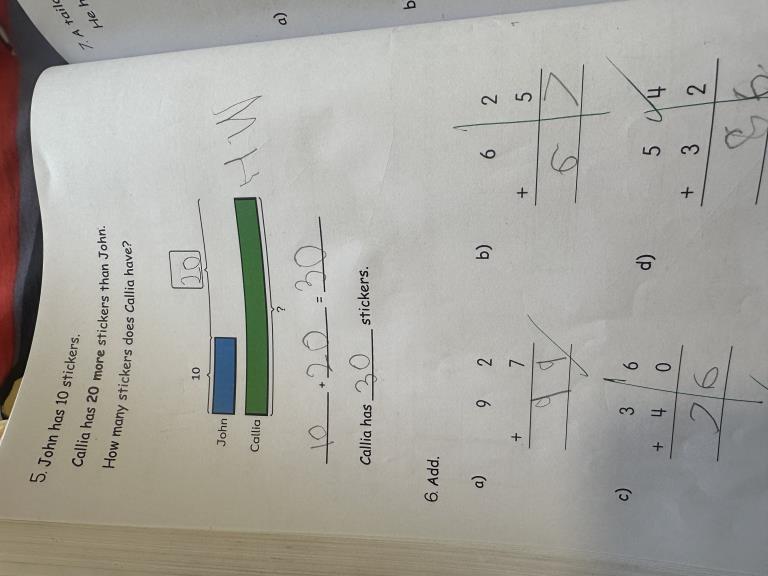 7. A
He
a)
b
5. John has 10 stickers.
Callia has 20 more stickers than John.
How many stickers does Callia have?
10
20
John
Callia
?
10 + 20 = 30
Callia has 30 stickers.
6. Add.
a)
9 2
+ 7
9 9
b)
6 2
+ 5
6 7
c)
3 6
+ 4 0
7 6
d)
5 4
+ 3 2
8 6